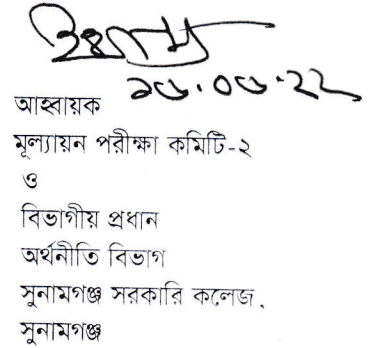 ২৬.০৬.২২
আহ্বায়ক
মূল্যায়ন পরীক্ষা কমিটি-২
ও
বিভাগীয় প্রধান
অর্থনীতি বিভাগ
সুনামগঞ্জ সরকারি কলেজ,
সুনামগঞ্জ